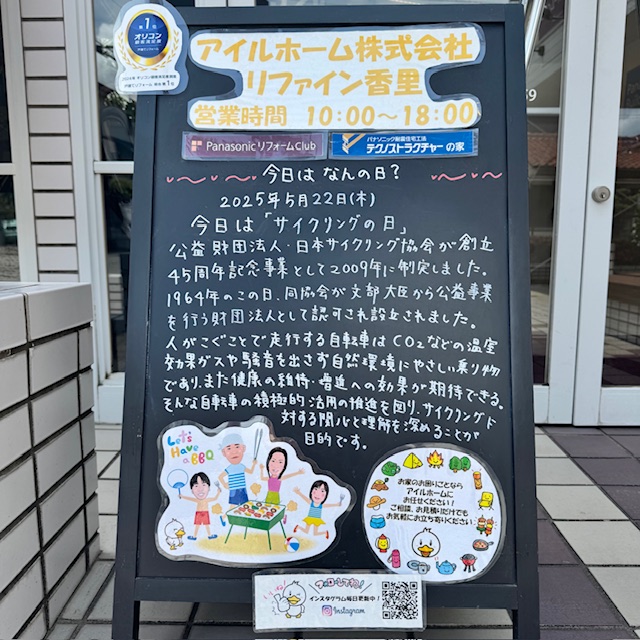 第1位
オリコン
顧客満足度
アイルホーム株式会社
リファイン香里
営業時間 10:00～18:00
Panasonic リフォームClub
パナソニック耐震住宅工法
テクノストラクチャーの家
今日は なんの日?
2025年5月22日(木)
今日は「サイクリングの日」
公益財団法人・日本サイクリング協会が創立
45周年記念事業として2009年に制定しました。
1964年のこの日、同協会が文部大臣から公益事業
を行う財団法人として認可され設立されました。
人がこぐことで走行する自転車はCO2などの温室
効果ガスや騒音を出さず自然環境にやさしい乗り物
であり、また健康の維持・増進への効果が期待できる。
そんな自転車の積極的活用の推進を図り、サイクリングに
対する関心と理解を深めることが
目的です。
Let's
Have
a BBQ
お家のお困りごとなら
アイルホームに
お任せください!
ご相談、お見積りだけでも
お気軽にお立ち寄りください
フォローしてね!
インスタグラム毎日更新中!
Instagram